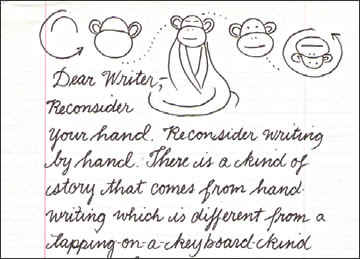 Dear Writer,
Reconsider
your hand. Reconsider writing
by hand. There is a kind of
story that comes from hand
writing which is different from a
tapping-on-a-keyboard-kind